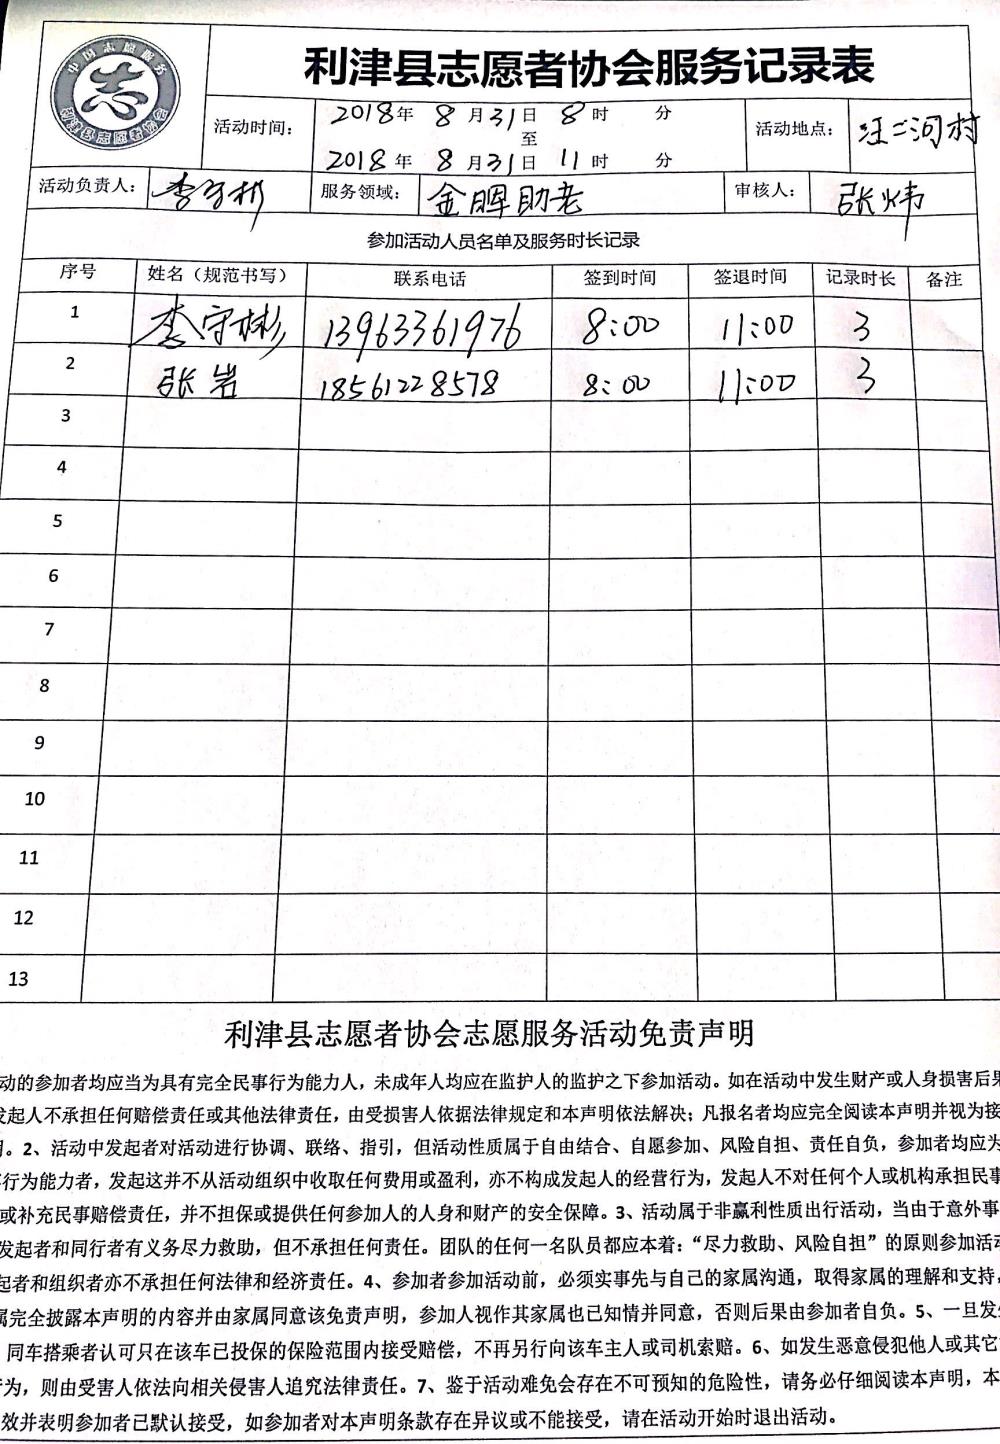 中国志愿服务
利津县志愿者协会服务记录表
活动时间： 2018年 8月31日 8时 分
至
2018年 8月31日 11时 分
活动地点： 汪二河村
活动负责人： 李守彬 服务领域： 金晖助老 审核人： 张炜
参加活动人员名单及服务时长记录
序号 姓名（规范书写） 联系电话 签到时间 签退时间 记录时长 备注
1 李守彬 13963361976 8:00 11:00 3
2 张岩 18561228578 8:00 11:00 3
3
4
5
6
7
8
9
10
11
12
13
利津县志愿者协会志愿服务活动免责声明
动的参加者均应当为具有完全民事行为能力人，未成年人均应在监护人的监护之下参加活动。如在活动中发生财产或人身损害后果
发起人不承担任何赔偿责任或其他法律责任，由受损害人依据法律规定和本声明依法解决；凡报名者均应完全阅读本声明并视为接
。2、活动中发起者对活动进行协调、联络、指引，但活动性质属于自由结合、自愿参加、风险自担、责任自负，参加者均应为
行为能力者，发起这并不从活动组织中收取任何费用或盈利，亦不构成发起人的经营行为，发起人不对任何个人或机构承担民事
或补充民事赔偿责任，并不担保或提供任何参加人的人身和财产的安全保障。3、活动属于非赢利性质出行活动，当由于意外事
发起者和同行者有义务尽力救助，但不承担任何责任。团队的任何一名队员都应本着：“尽力救助、风险自担”的原则参加活动
起者和组织者亦不承担任何法律和经济责任。4、参加者参加活动前，必须实事先与自己的家属沟通，取得家属的理解和支持，
属完全披露本声明的内容并由家属同意该免责声明，参加人视作其家属也已知情并同意，否则后果由参加者自负。5、一旦发生
同车搭乘者认可只在该车已投保的保险范围内接受赔偿，不再另行向该车主人或司机索赔。6、如发生恶意侵犯他人或其它
行为，则由受害人依法向相关侵害人追究法律责任。7、鉴于活动难免会存在不可预知的危险性，请务必仔细阅读本声明，本
效并表明参加者已默认接受，如参加者对本声明条款存在异议或不能接受，请在活动开始时退出活动。